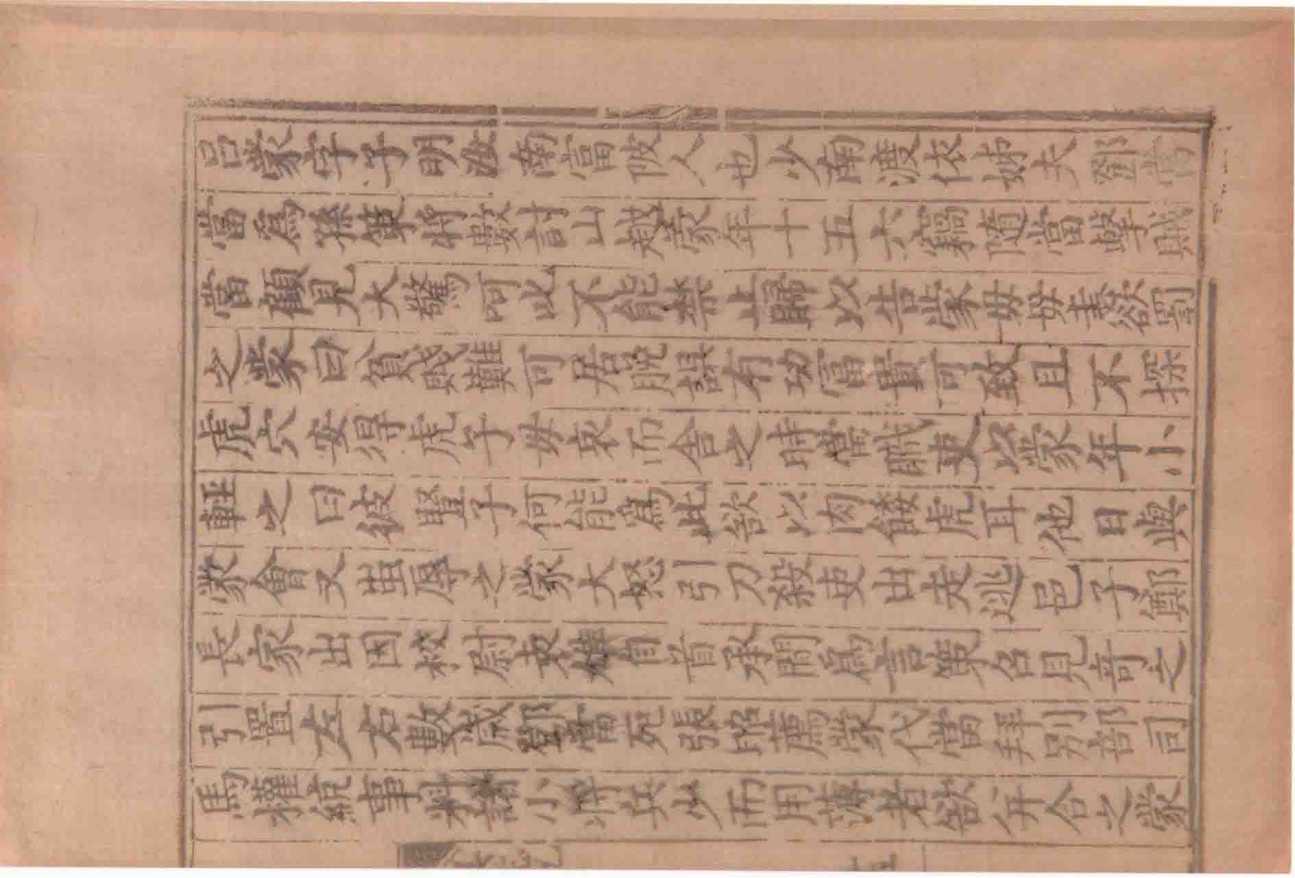 呂蒙字子明汝南富陂人也少南渡依姊夫鄧當
當為孫策將數討山越蒙年十五六竊隨當擊賊
當顧見大驚呵叱不能禁止歸以告蒙母母恚欲罰
之蒙曰貧賤難可居脫誤有功富貴可致且不探
虎穴安得虎子母哀而舍之時當職吏以蒙年小
輕之曰彼豎子何能為此欲以肉餧虎耳他日與
蒙會又蚩辱之蒙大怒引刀殺吏出走逃邑子鄭
長家出因校尉袁雄自首承間為言策召見奇之
引置左右數歲鄧當死張昭薦蒙代當拜別部司
馬權統事料諸小將兵少而用薄者欲并合之蒙